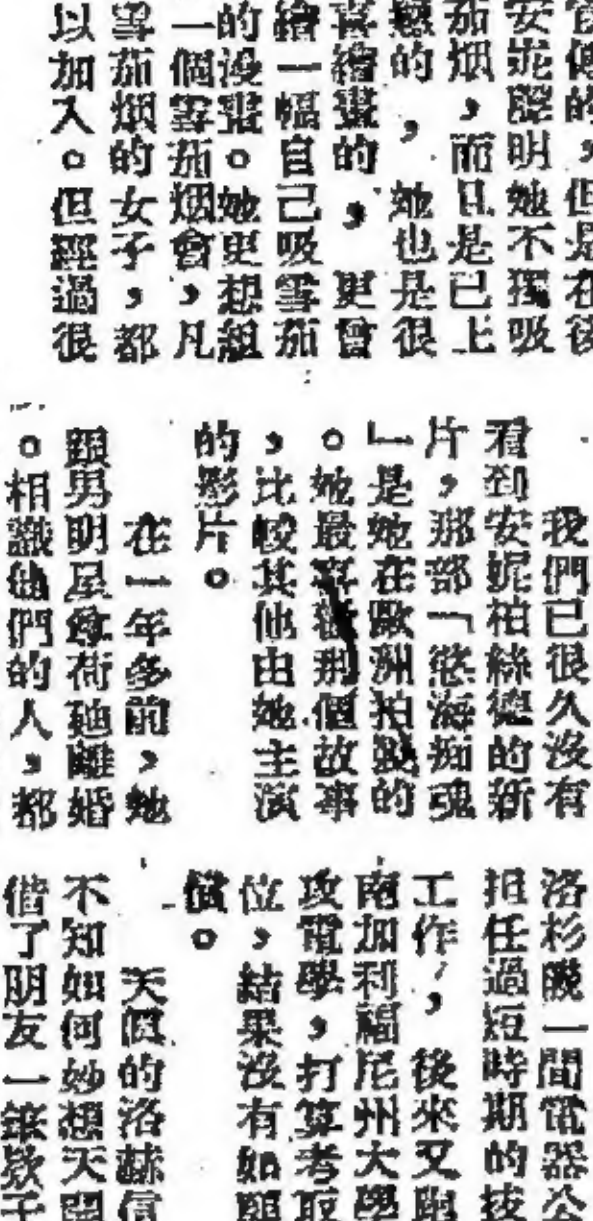 官傳的，但是在後
安妮聲明她不獨吸
茄烟，而且是已上
癮的，她也是很
喜繪畫的，更曾
繪一幅自己吸雪茄
的漫畫。她更想組
一個雪茄烟會，凡
雪茄烟的女子，都
以加入。但經過很
我們已很久沒有
看到安妮柏絲德的新
片，那部「慾海痴魂
」是她在歐洲拍的
。她最喜歡那個故事
，比較其他由她主演
的影片。
在一年多前，她
跟男明星荷離婚
。相識他們的人，都
洛杉磯一間電器公
担任過短時期的技
工作，後來又
南加利福尼州大學
攻電學，打算考取
位，結果沒有如願
償。
天假的洛赫信
不知如何妙想天開
借了朋友一筆欵子